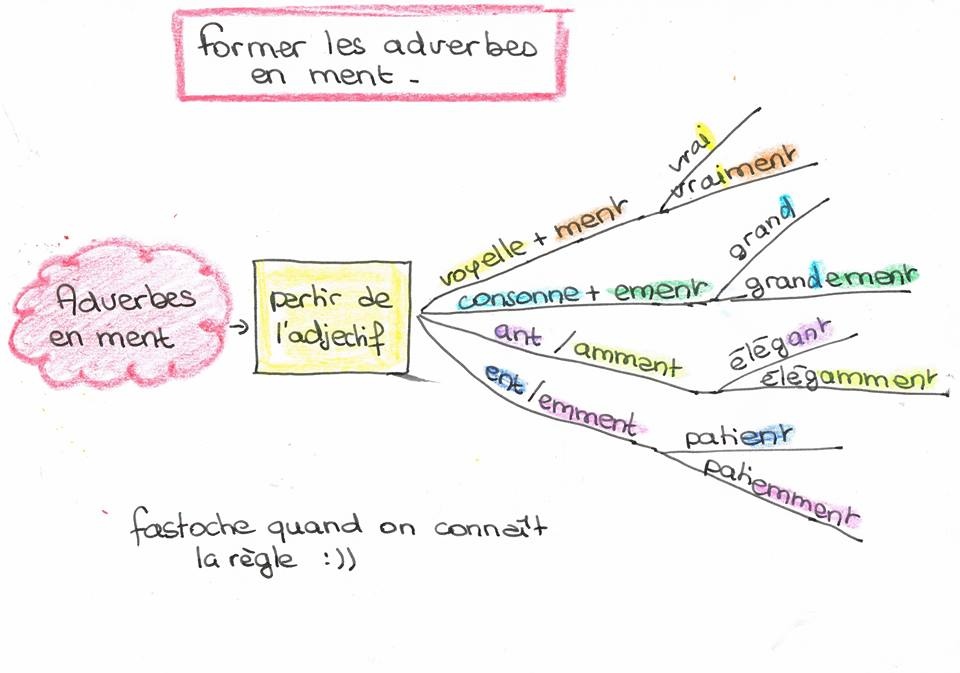 former les adverbes
en ment -
Adverbes
en ment
partir de
l'adjectif
voyelle + ment
vrai
vraiment
consonne + ement
grand
grandement
ant / amment
élégant
élégamment
ent / emment
patient
patiemment
fastoche quand on connaît
la règle :))